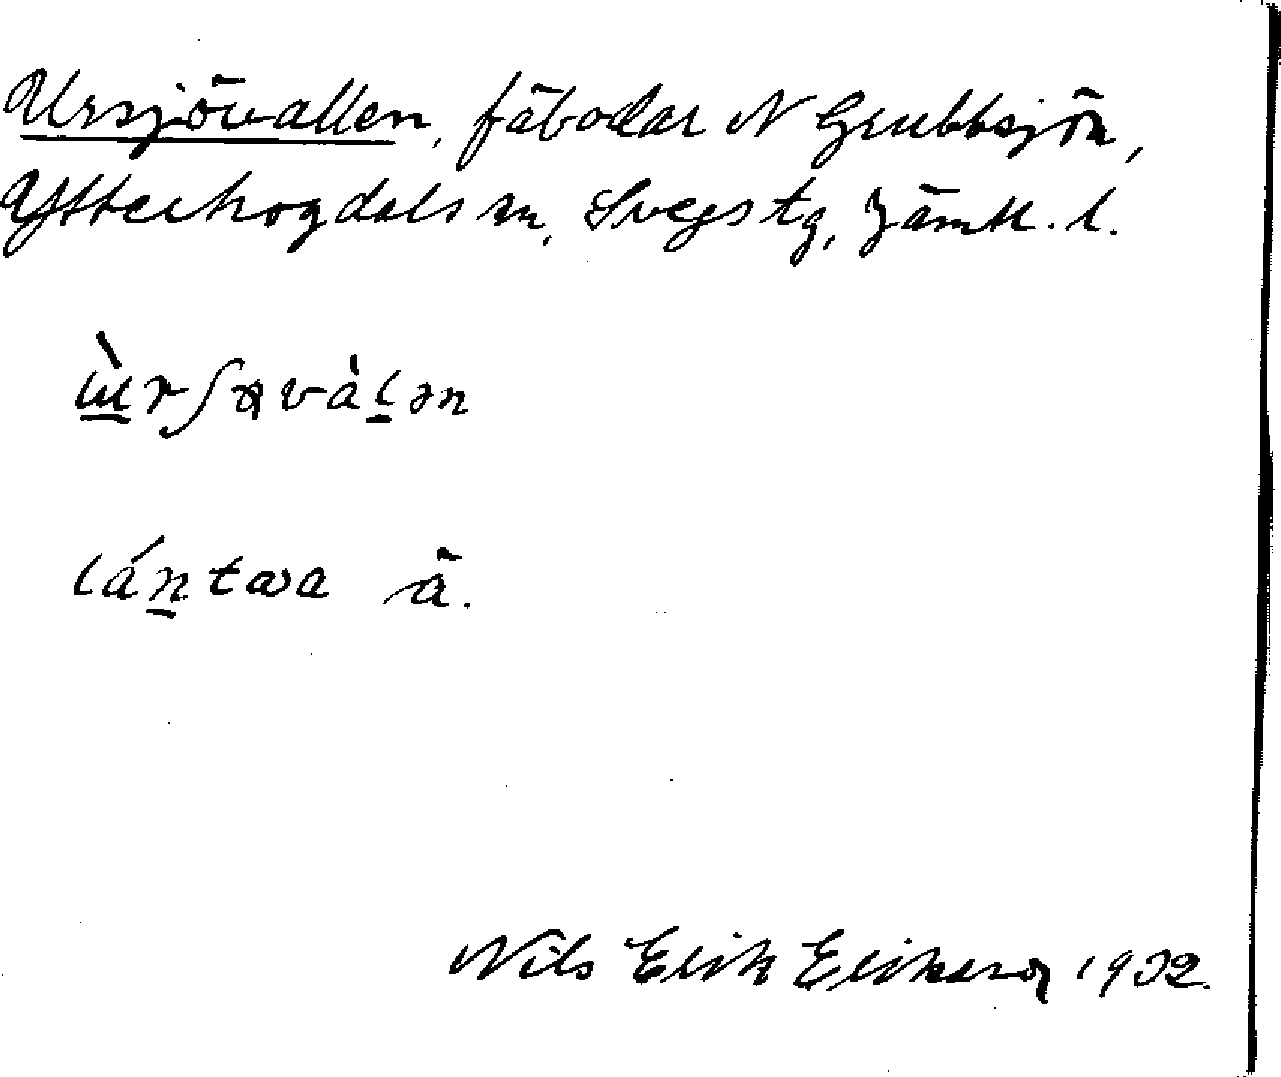 Ursjövallen, fäbodar N Grubbsjön,
Ytterhogdals sn, Svegs tg, Jämtl. l.
lántwa å.
Nils Erik Erikson 1932.